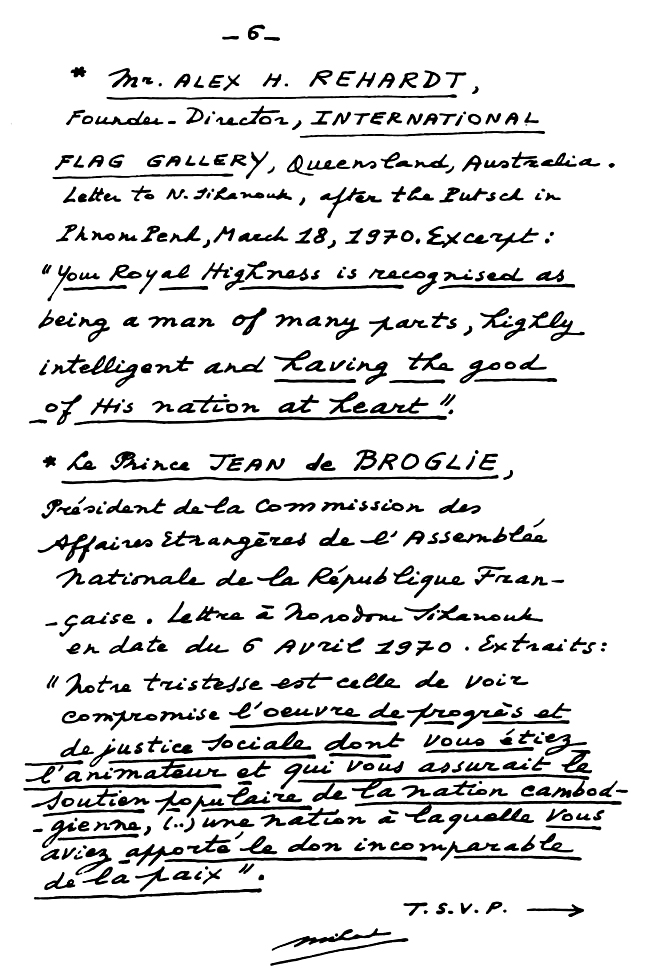 - 6 -
* Mr. ALEX H. REHARDT,
Founder - Director, INTERNATIONAL
FLAG GALLERY, Queensland, Australia.
Letter to N. Sihanouk, after the Putsch in
Phnom Penh, March 18, 1970. Excerpt :
"Your Royal Highness is recognised as
being a man of many parts, highly
intelligent and having the good
of His nation at heart".
* Le Prince JEAN de BROGLIE,
Président de la Commission des
Affaires Etrangères de l'Assemblée
Nationale de la République Fran-
-çaise. Lettre à Norodom Sihanouk
en date du 6 Avril 1970. Extraits :
"Notre tristesse est celle de voir
compromise l'oeuvre de progrès et
de justice sociale dont vous étiez
l'animateur et qui vous assurait le
soutien populaire de la nation cambod-
-gienne, (..) une nation à laquelle vous
aviez apporté le don incomparable
de la paix".
T.S.V.P. →